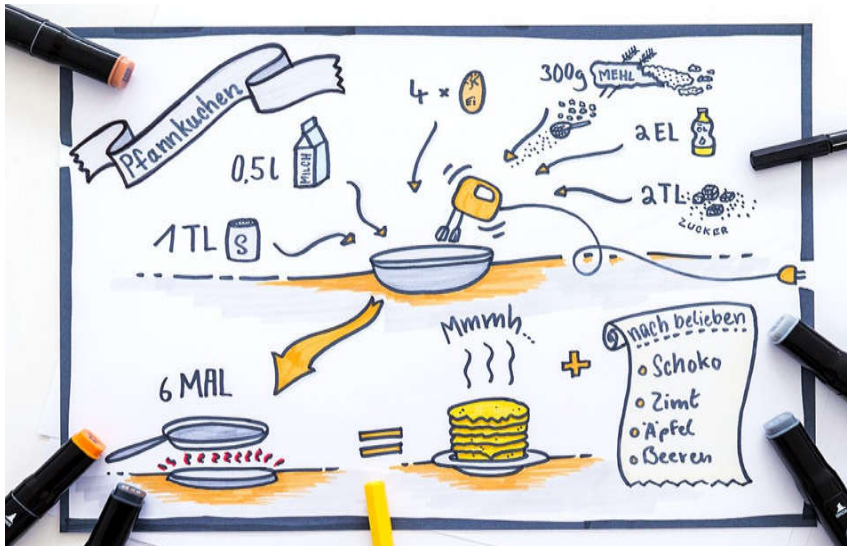 Pfannkuchen
4 x
Ei
300g
MEHL
0,5l
MILCH
2 EL
ÖL
2TL
ZUCKER
1 TL
S
6 MAL
Mmmh...
+
=
nach belieben
Schoko
Zimt
Äpfel
Beeren